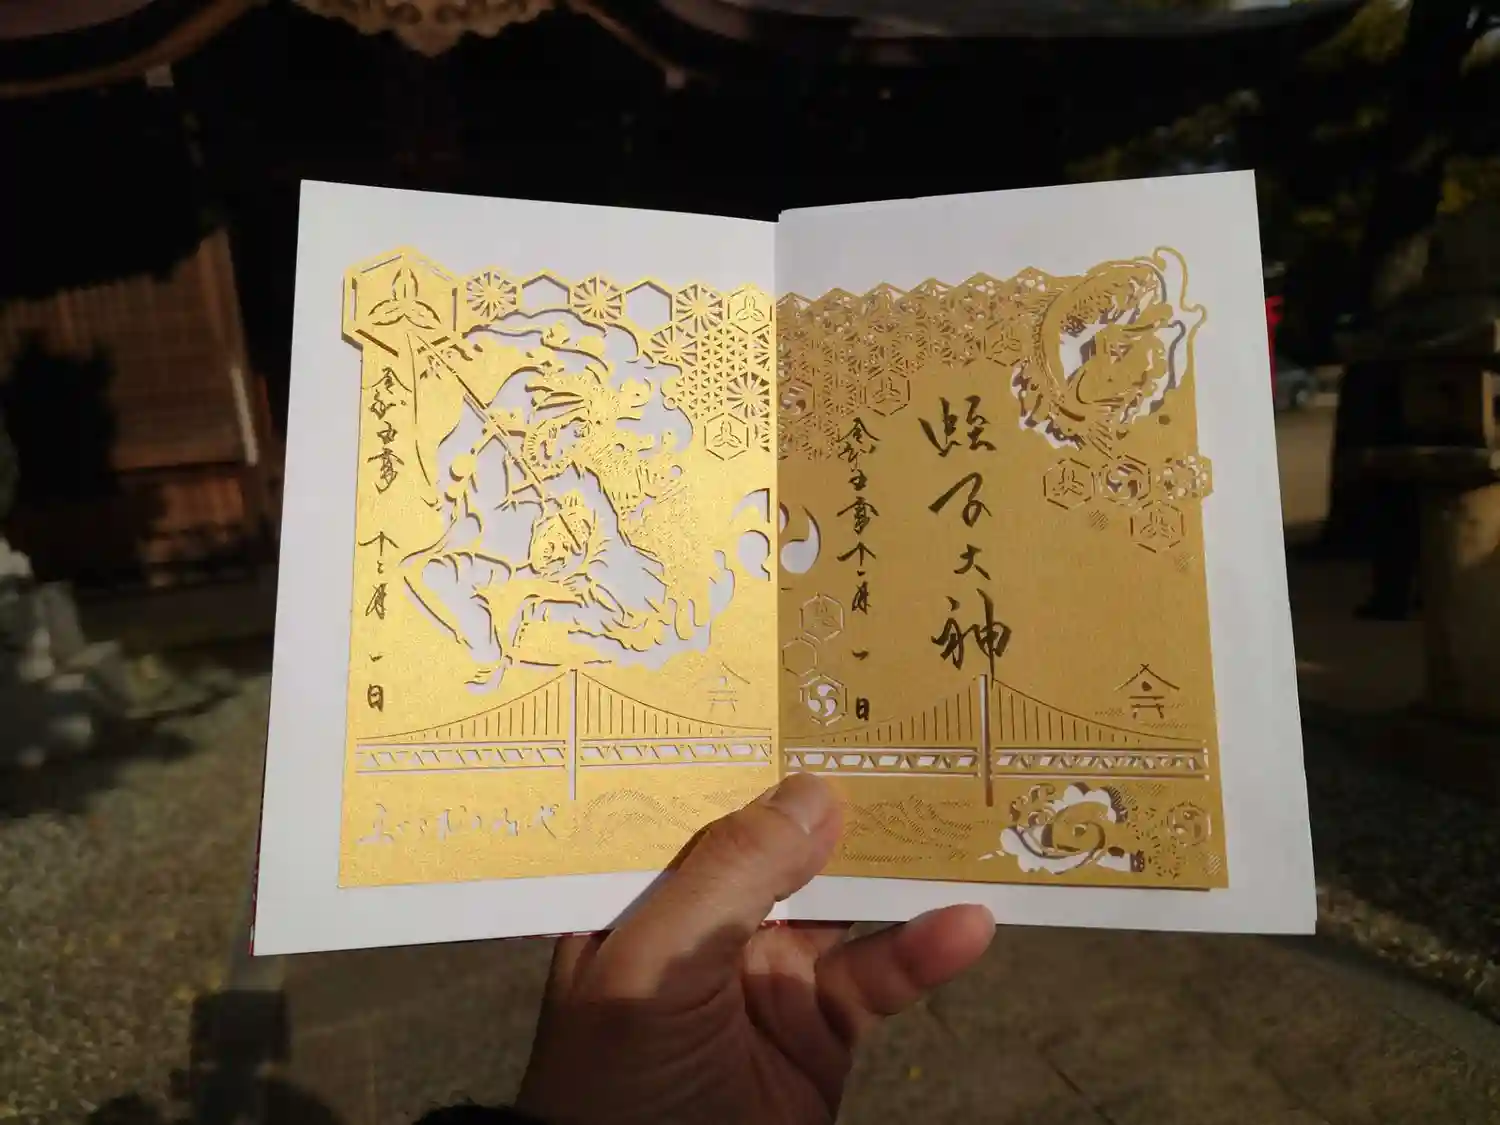 蛭子大神
令和五年十一月一日
令和五年十二月一日